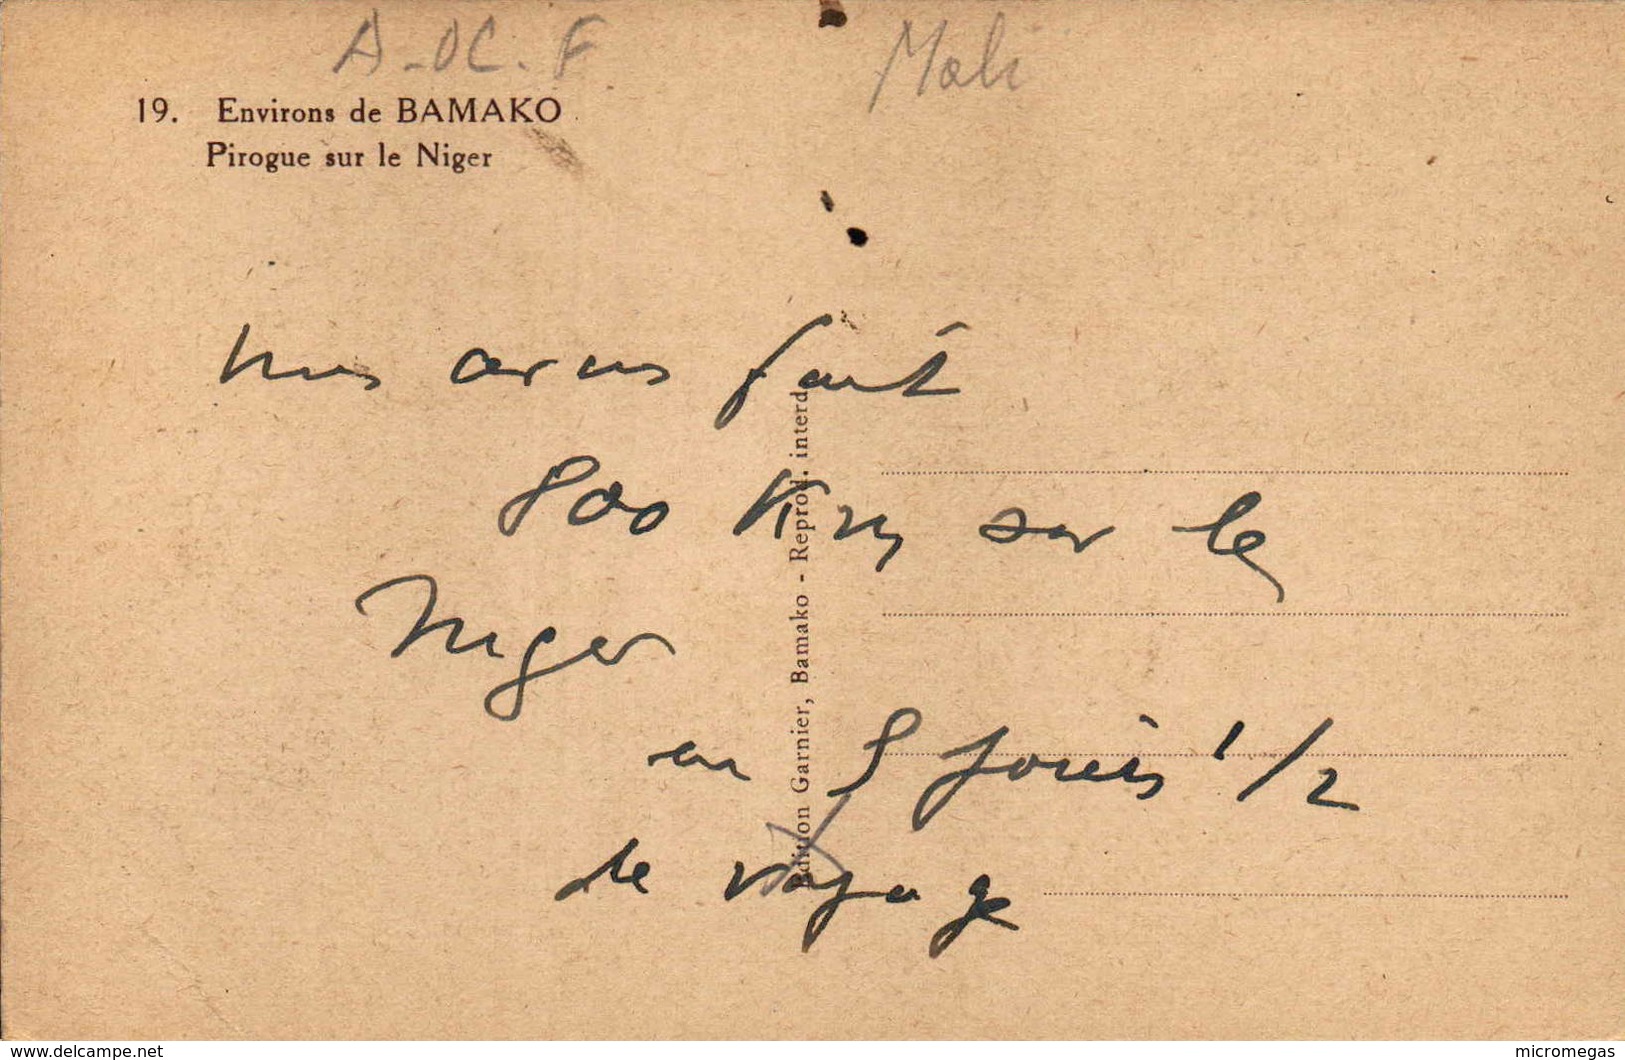 A-OC.F
Mali
19. Environs de BAMAKO
Pirogue sur le Niger
nous avons fait
800 Km sur le
Niger
en 8 jours 1/2
de voyage
Edition Garnier, Bamako - Reprod. interd.
www.delcampe.net
micromegas